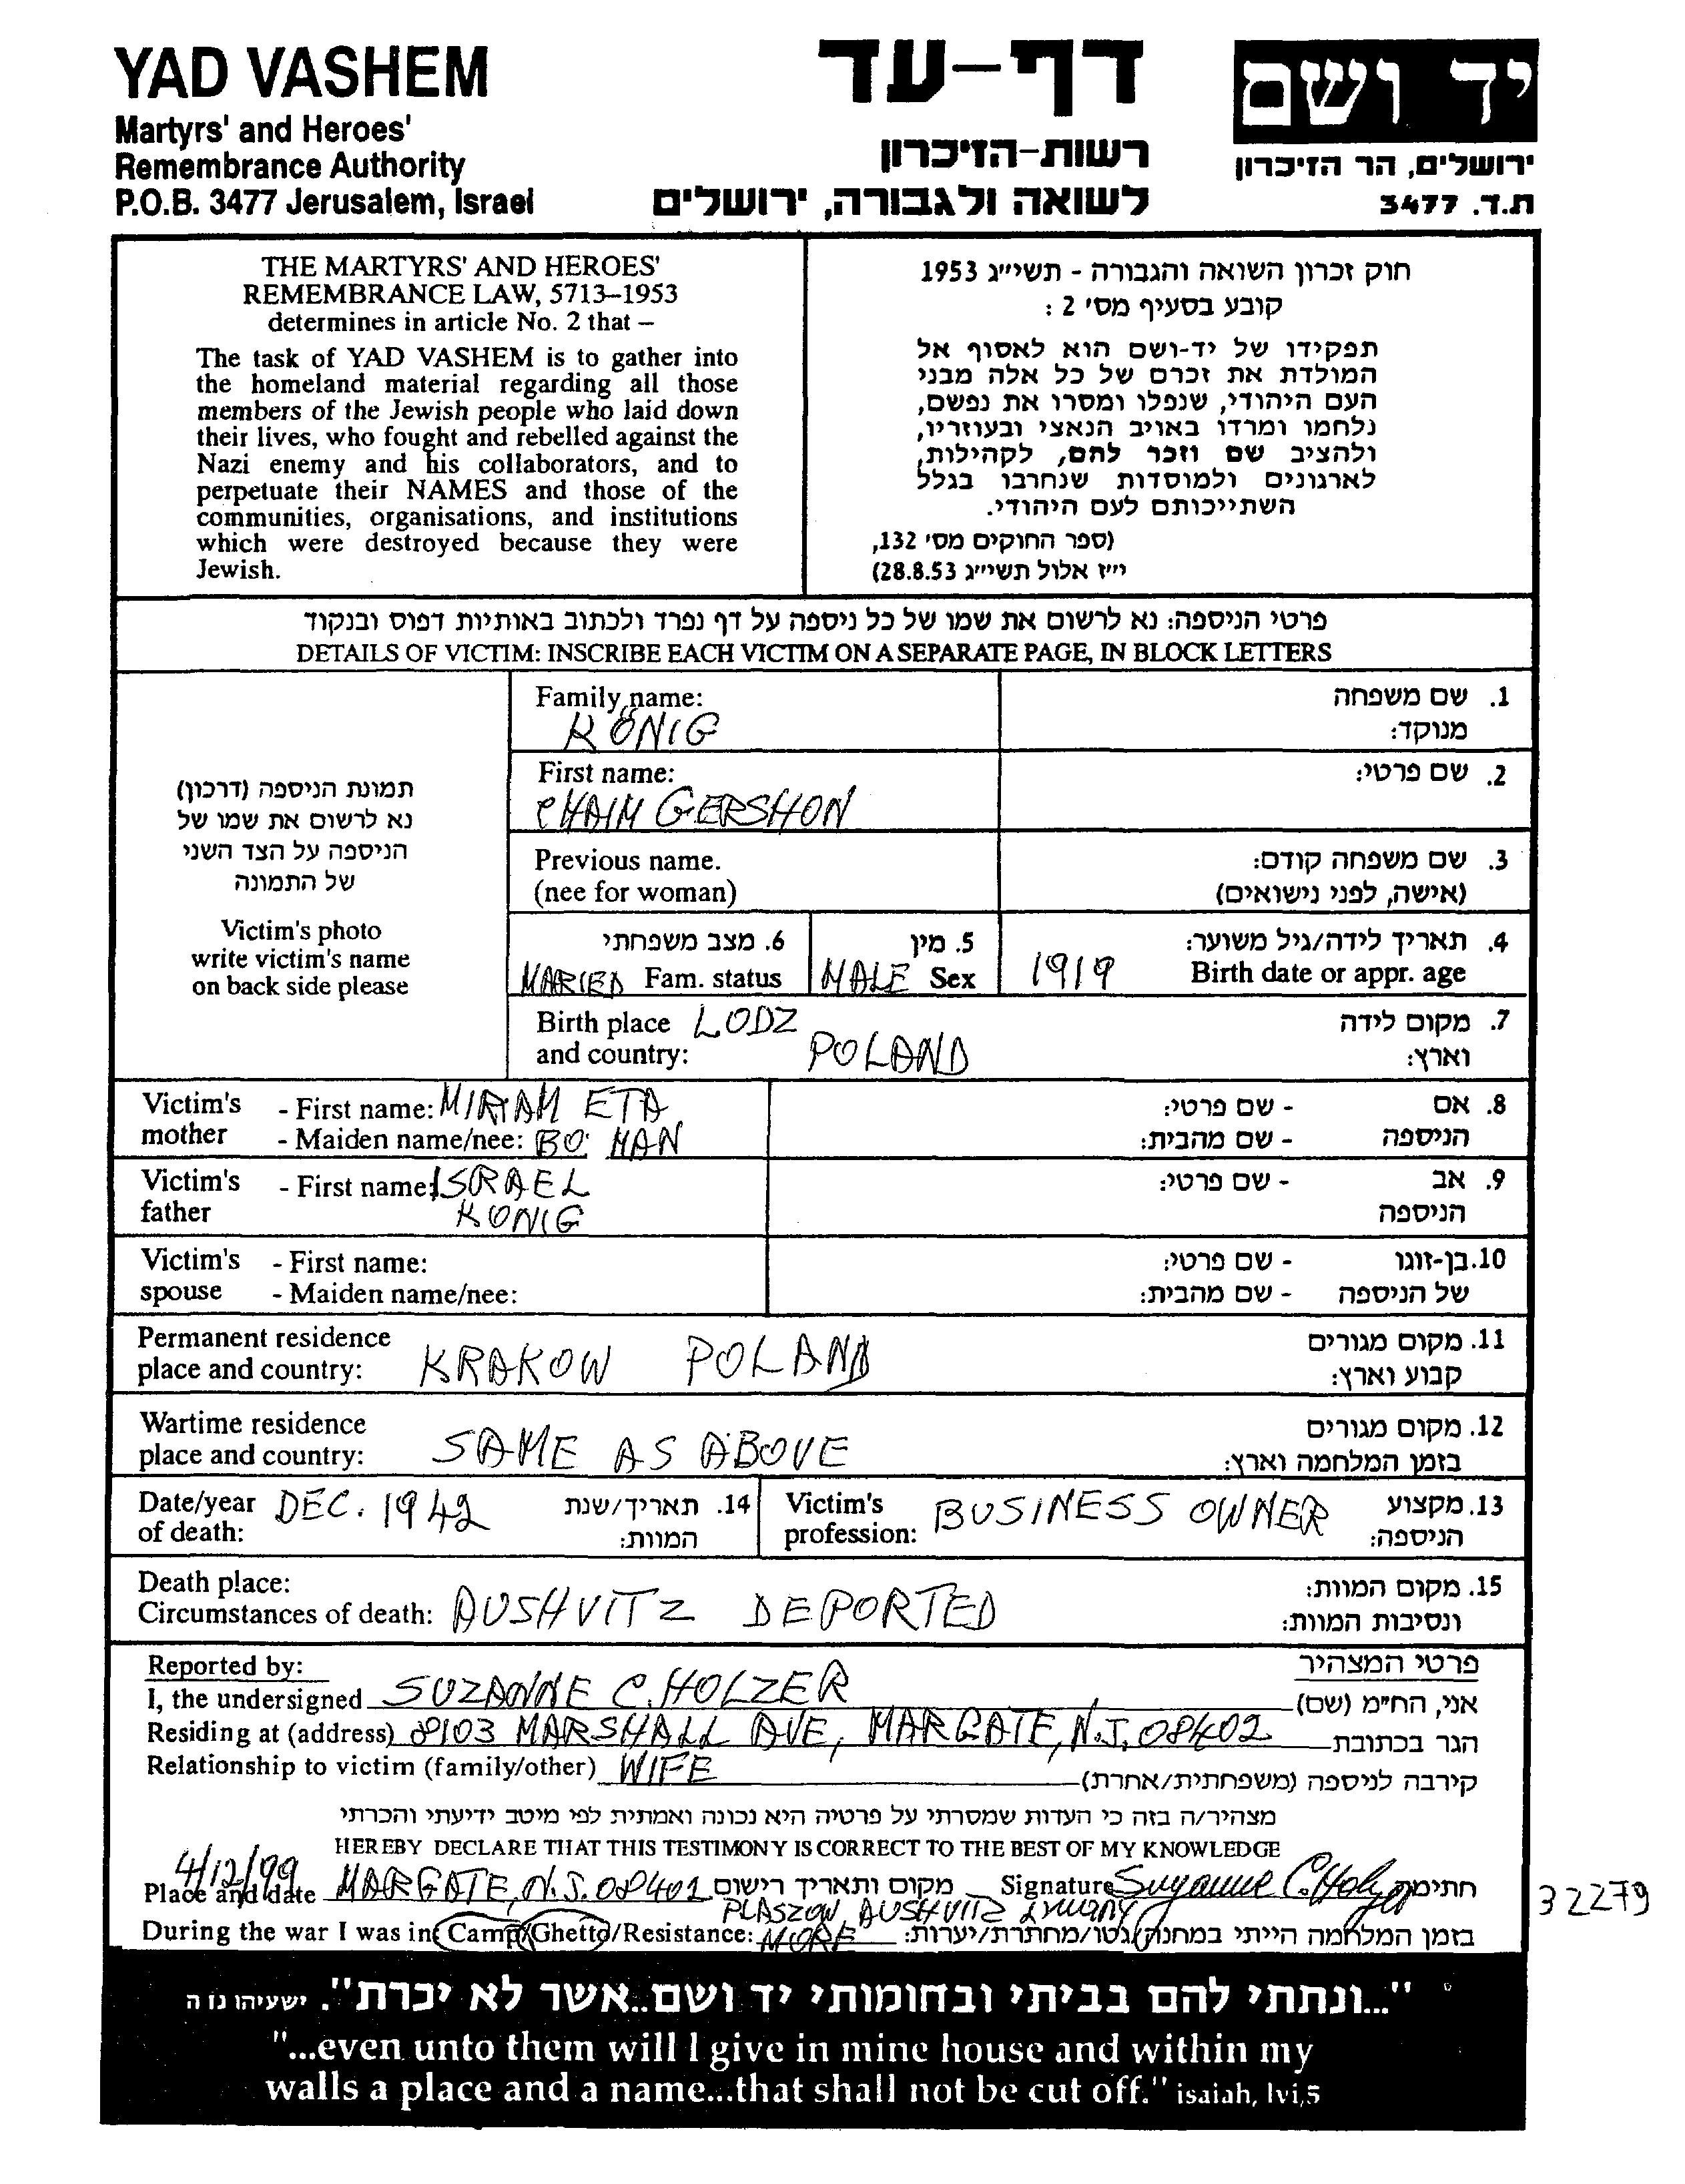 YAD VASHEM
Martyrs' and Heroes'
Remembrance Authority
P.O.B. 3477 Jerusalem, Israel
דף-עד
רשות-הזיכרון
לשואה ולגבורה, ירושלים
יד ושם
ירושלים, הר הזיכרון
ת.ד. 3477
THE MARTYRS' AND HEROES'
REMEMBRANCE LAW, 5713–1953
determines in article No. 2 that –
The task of YAD VASHEM is to gather into
the homeland material regarding all those
members of the Jewish people who laid down
their lives, who fought and rebelled against the
Nazi enemy and his collaborators, and to
perpetuate their NAMES and those of the
communities, organisations, and institutions
which were destroyed because they were
Jewish.
חוק זכרון השואה והגבורה - תשי״ג 1953
קובע בסעיף מס' 2 :
תפקידו של יד-ושם הוא לאסוף אל
המולדת את זכרם של כל אלה מבני
העם היהודי, שנפלו ומסרו את נפשם,
נלחמו ומרדו באויב הנאצי ובעוזריו,
ולהציב שם וזכר להם, לקהילות,
לארגונים ולמוסדות שנחרבו בגלל
השתייכותם לעם היהודי.
(ספר החוקים מס' 132,
י״ז אלול תשי״ג 28.8.53)
פרטי הניספה: נא לרשום את שמו של כל ניספה על דף נפרד ולכתוב באותיות דפוס ובנקוד
DETAILS OF VICTIM: INSCRIBE EACH VICTIM ON A SEPARATE PAGE, IN BLOCK LETTERS
תמונת הניספה (דרכון)
נא לרשום את שמו של
הניספה על הצד השני
של התמונה
Victim's photo
write victim's name
on back side please
Family name: 1. שם משפחה
KÖNIG מנוקד:
First name: 2. שם פרטי:
CHAIM GERSHON
Previous name. 3. שם משפחה קודם:
(nee for woman) (אישה, לפני נישואים)
6. מצב משפחתי 5. מין 4. תאריך לידה/גיל משוער:
MARIED Fam. status MALE Sex 1919 Birth date or appr. age
Birth place LODZ 7. מקום לידה
and country: POLAND וארץ:
Victim's - First name: MIRIAM ETA - שם פרטי: 8. אם
mother - Maiden name/nee: - שם מהבית: הניספה
Victim's - First name: ISRAEL - שם פרטי: 9. אב
father KONIG הניספה
Victim's - First name: - שם פרטי: 10. בן-זוגו
spouse - Maiden name/nee: - שם מהבית: של הניספה
Permanent residence 11. מקום מגורים
place and country: KRAKOW POLAND קבוע וארץ:
Wartime residence 12. מקום מגורים
place and country: SAME AS ABOVE בזמן המלחמה וארץ:
Date/year DEC. 1942 14. תאריך/שנת Victim's BUSINESS OWNER 13. מקצוע
of death: המוות: profession: הניספה:
Death place: 15. מקום המוות:
Circumstances of death: AUSHVITZ DEPORTED ונסיבות המוות:
Reported by: פרטי המצהיר
I, the undersigned SUZANNE C. HOLZER אני, הח״מ (שם)
Residing at (address) 8103 MARSHALL AVE, MARGATE, N.J. 08402 הגר בכתובת
Relationship to victim (family/other) WIFE קירבה לניספה (משפחתית/אחרת)
מצהיר/ה בזה כי העדות שמסרתי על פרטיה היא נכונה ואמתית לפי מיטב ידיעתי והכרתי
HEREBY DECLARE THAT THIS TESTIMONY IS CORRECT TO THE BEST OF MY KNOWLEDGE
4/12/99
Place and date MARGATE, N.J. 08402 מקום ותאריך רישום Signature Suzanne C. Holzer חתימה
32279
PLASZOW AUSHVITZ
During the war I was in Camp/Ghetto/Resistance: MORE בזמן המלחמה הייתי במחנה/גטו/מחתרת/יערות:
"...ונתתי להם בביתי ובחומותי יד ושם..אשר לא יכרת". ישעיהו נו ה
"...even unto them will I give in mine house and within my
walls a place and a name...that shall not be cut off." isaiah, lvi,5